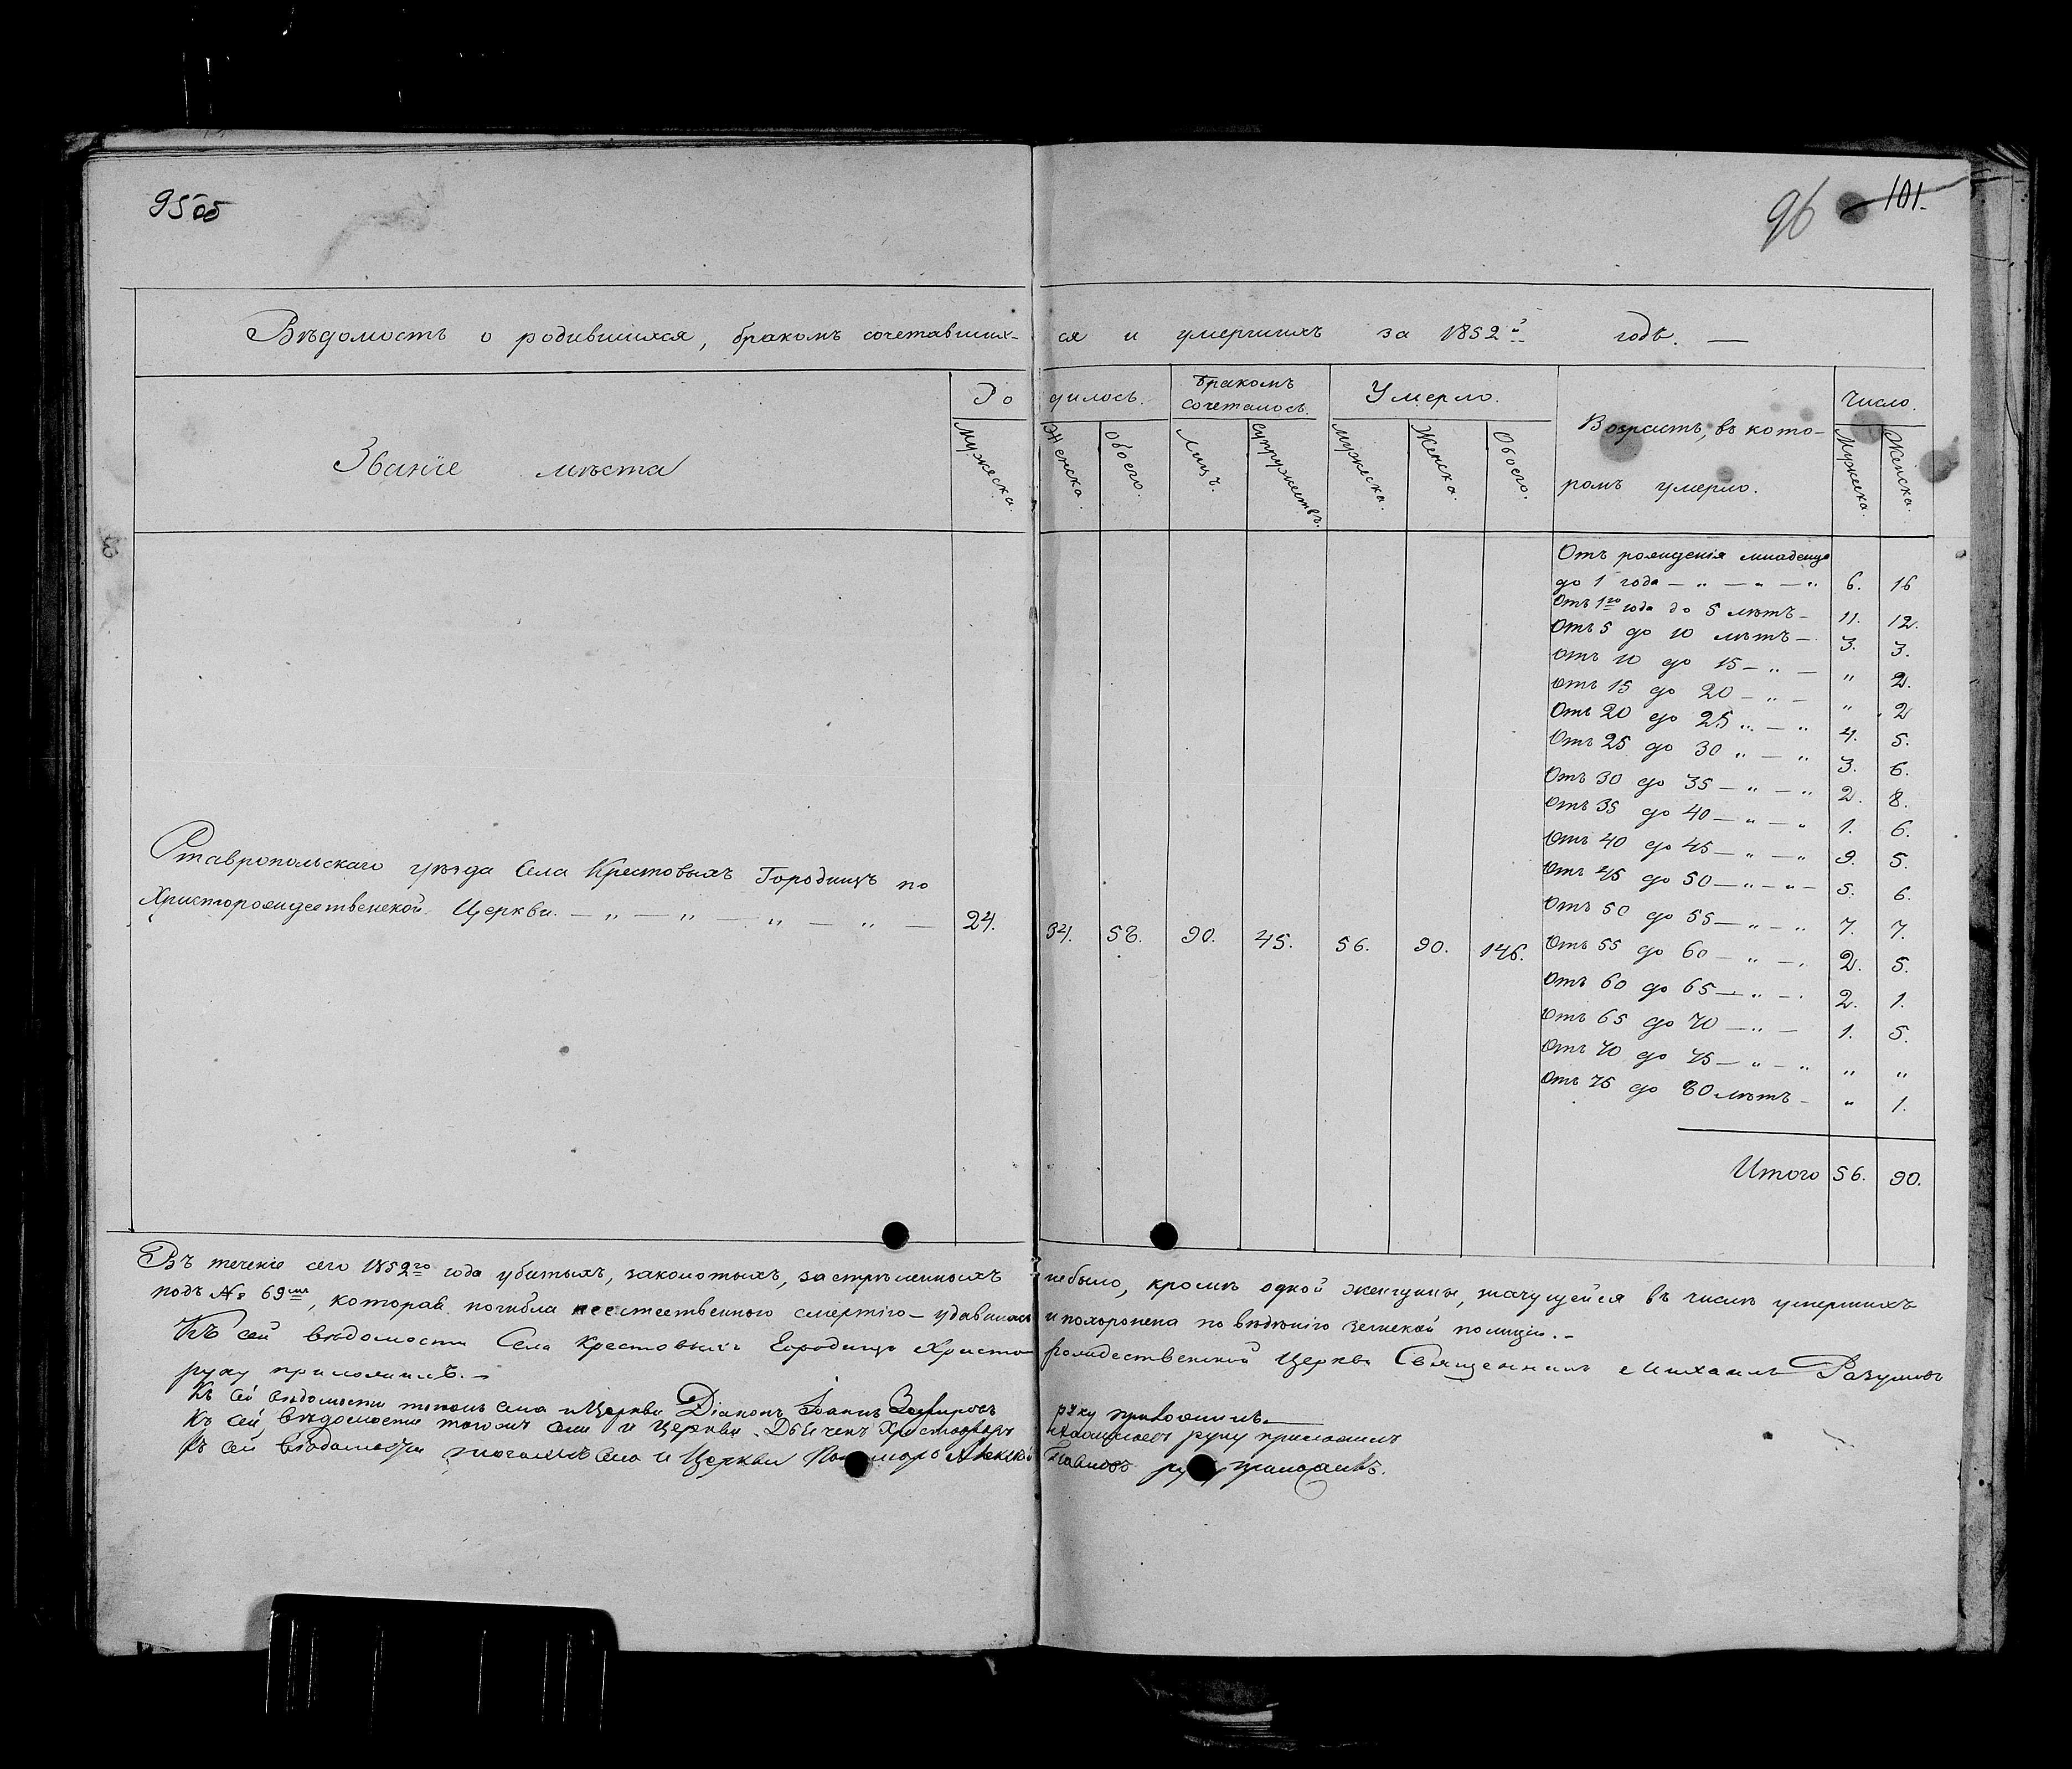 95 об
96 101.
Вѣдомость о родившихся, бракомъ сочетавших- ся и умершихъ за 1852й годъ. —
Званіе мѣста
Ро дилось.
Бракомъ сочеталось.
Умерло.
Возрастъ, въ кото-
ромъ умерло.
Число.
Мужеска. Женска. Обоего. Лицъ. Супружествъ. Мужеска. Женска. Обоего. Мужеска. Женска.
Ставропольскаго уѣзда Села Крестовыхъ Городищъ по
Христорождественской Церкви. — „ — „ — „ — „ — 24. 34. 58. 90. 45. 56. 90. 146.
Отъ рожденія младенца
до 1 года — „ — „ — „ 6. 16
Отъ 1го года до 5 лѣтъ — 11. 12.
Отъ 5 до 10 лѣтъ — 3. 3.
Отъ 10 до 15 — „ — „ 2.
Отъ 15 до 20 — „ — „ 2
Отъ 20 до 25 „ — „ 4. 5.
Отъ 25 до 30 „ — „ 3. 6.
Отъ 30 до 35 — „ — „ 2. 8.
Отъ 35 до 40 — „ — „ 1. 6.
Отъ 40 до 45 — „ — „ 9. 5.
Отъ 45 до 50 — „ — „ — 5. 6.
Отъ 50 до 55 — „ — „ 7. 7.
Отъ 55 до 60 — „ — „ 2. 5.
Отъ 60 до 65 — „ — „ 2. 1.
Отъ 65 до 70 — „ — 1. 5.
Отъ 70 до 75 — „ — „ „ „
Отъ 75 до 80 лѣтъ — „ 1.
Итого 56. 90.
Въ теченіе сего 1852го года убитыхъ, заколотыхъ, застрѣленныхъ небыло, кромѣ одной женщины, значущейся въ числѣ умершихъ
подъ № 69мъ, которая погибла неестественною смертію — удавилась и похоронена по вѣдѣнію земской полиціи. —
Къ сей вѣдомости Села Крестовыхъ Городищъ Христо рождественской Церкви Священникъ Михаилъ Разумовъ
руку приложилъ. —
Къ сей вѣдомости тогожъ села и Церкви Діаконъ Іоаннъ руку приложилъ. —
Къ сей вѣдомости тогожъ села и Церкви Дьячекъ руку приложилъ
Къ сей вѣдомости тогожъ села и Церкви Пономарь Алексѣй Павловъ руку приложилъ.